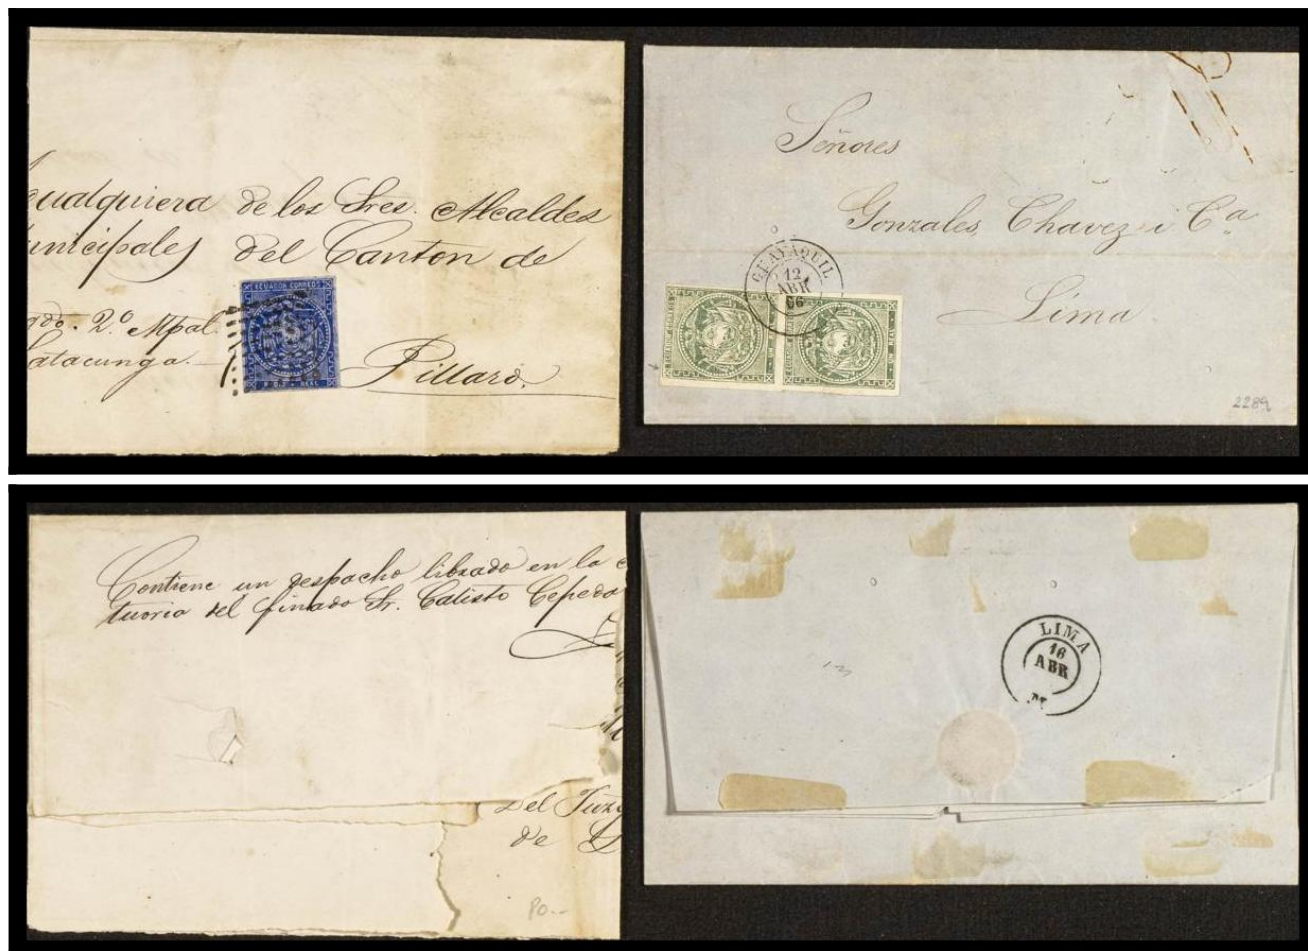 cualquiera de los Sres. Alcaldes
unicipales del Canton de
gdo. 2.º Mpal.
atacunga.
Pillaro.
ECUADOR CORREOS
REAL
Señores
Gonzales, Chavez i Cª
Lima
GUAYAQUIL
12
ABR
66
2289
Contiene un despacho librado en la
tuoria del finado Sr. Calisto Cepeda
Del Juzg
de
PO--
LIMA
16
ABR